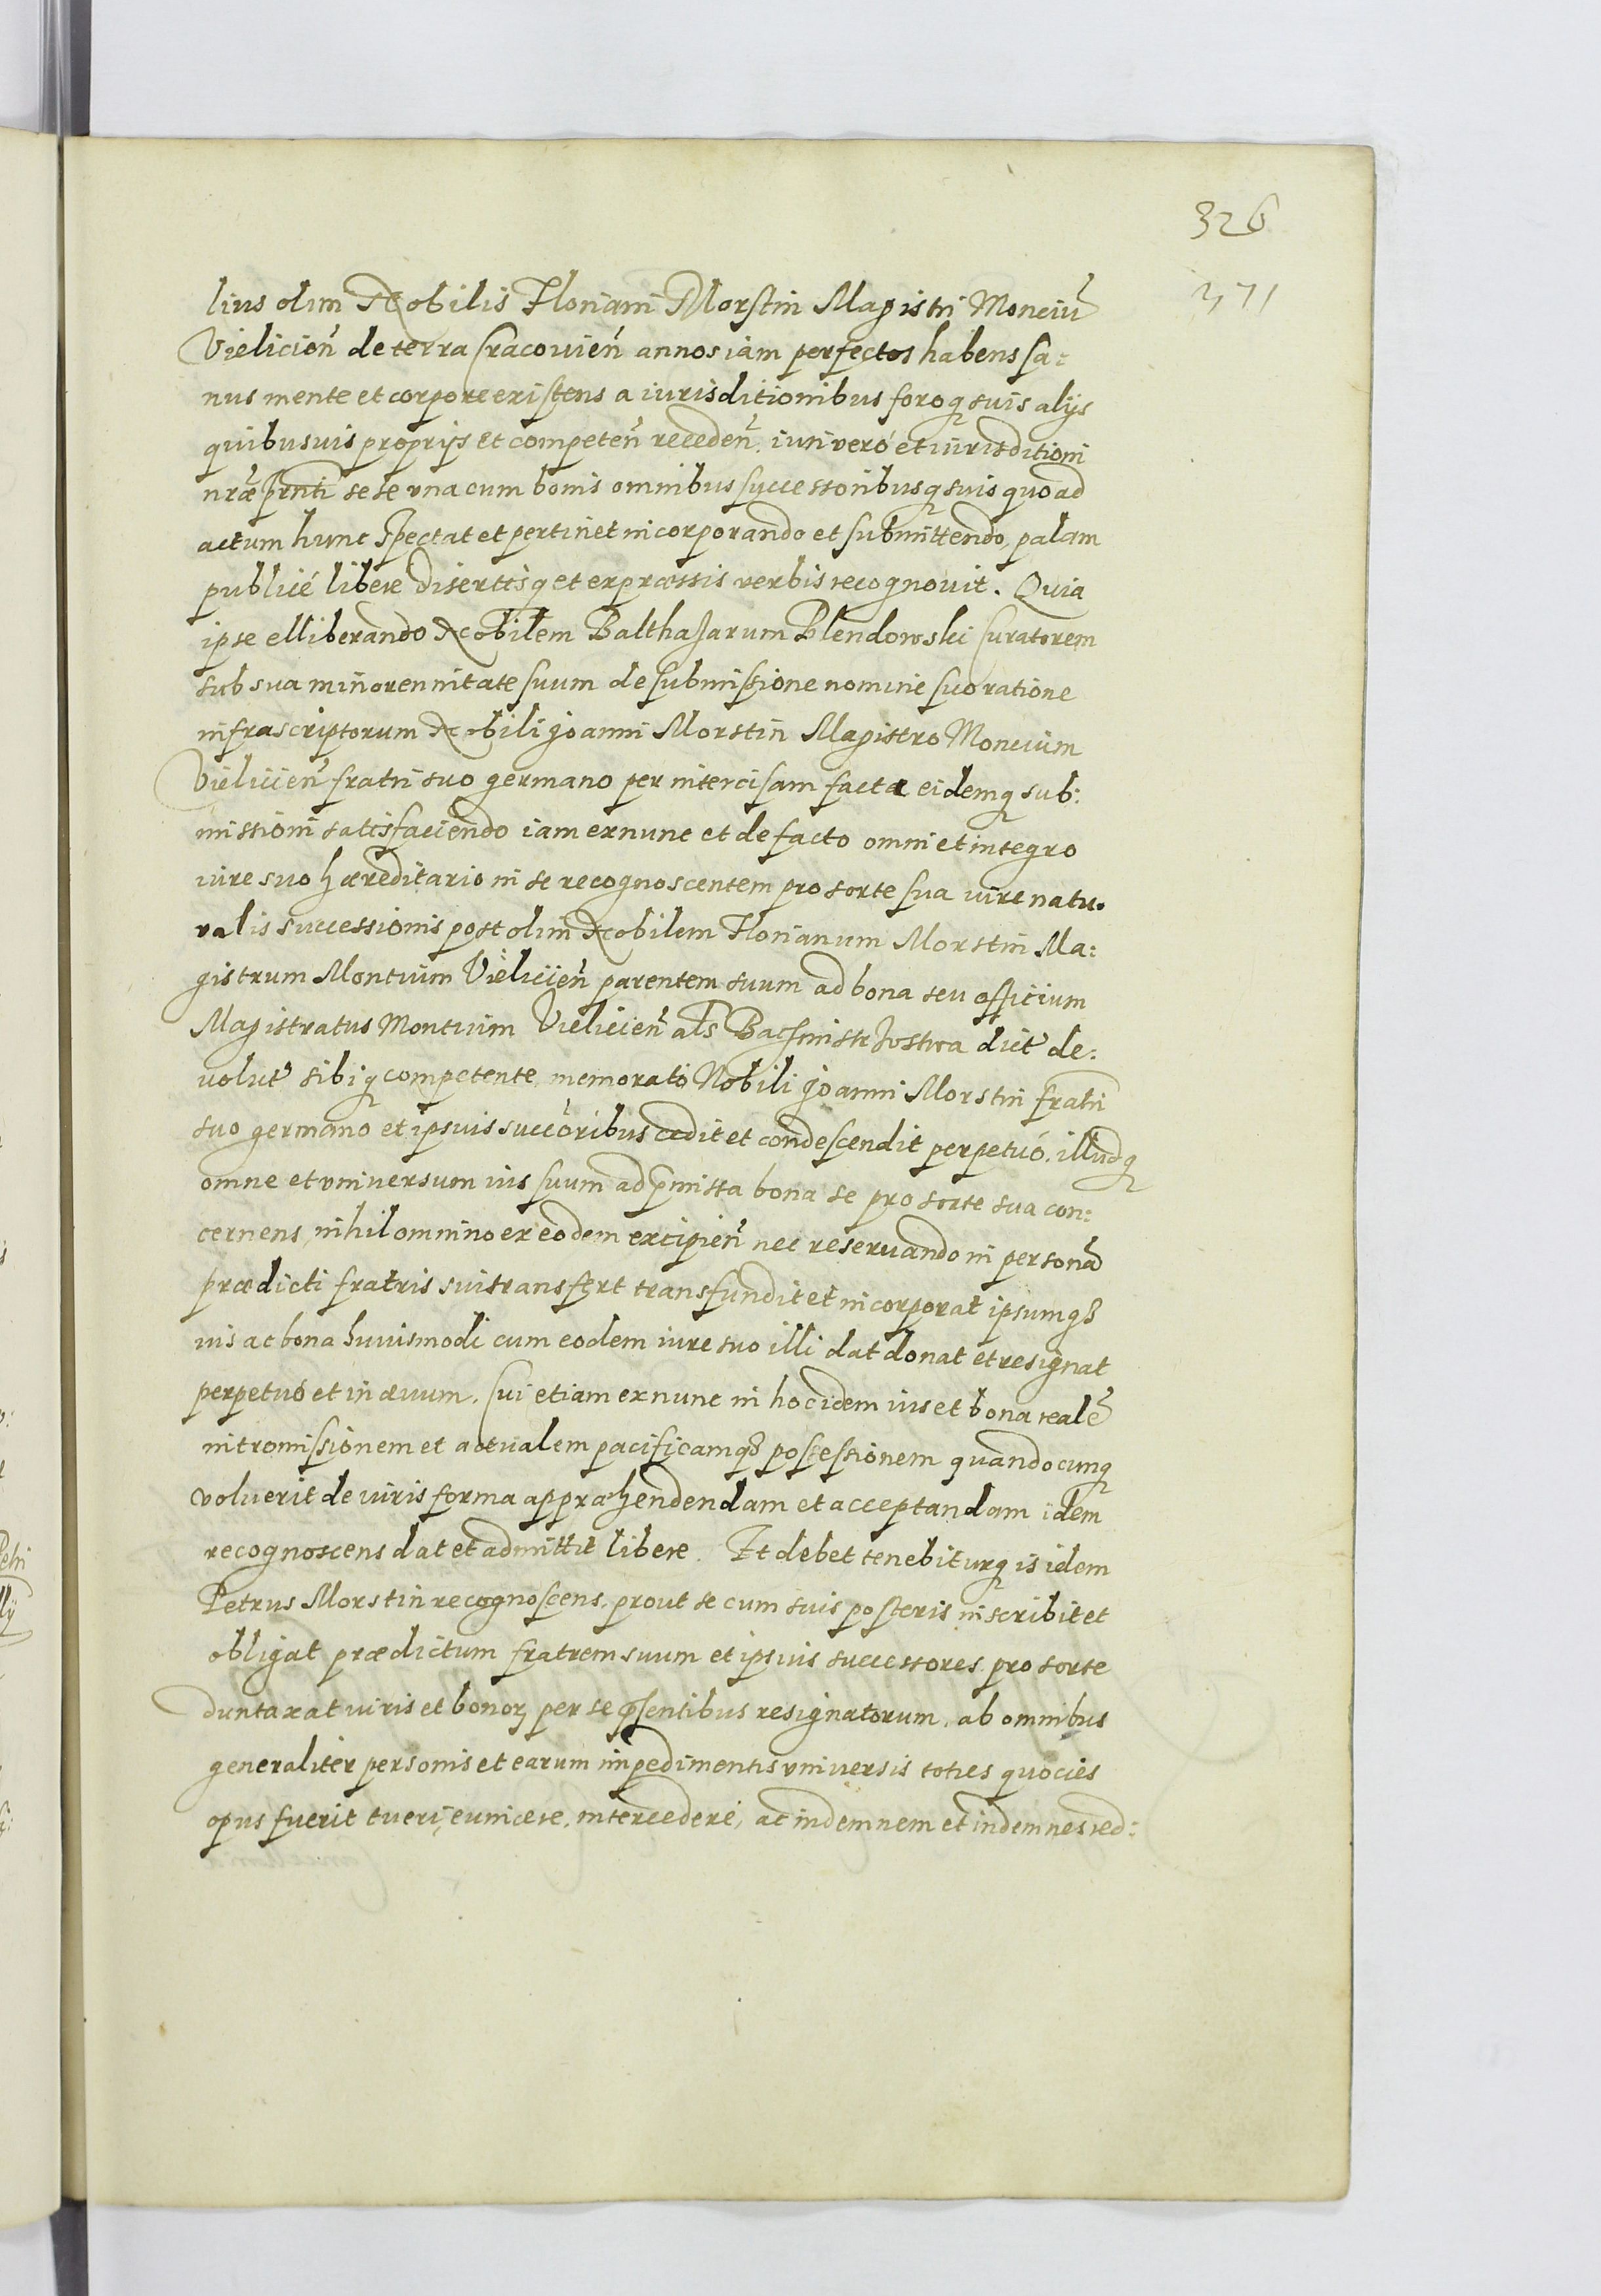 326
371
lius olim Nobilis Floriani Morstin Magistri Monciu͂
Vielicien͂ de terra Cracouien͂ annos iam perfectos habens sa:
nus mente et corpore existens a iurisditionibus foroq suis alijs
quibusuis proprijs et competen͂ receden͂. iuri veró et iurisditioni
nr͂æ pr̃nti sese vna cum bonis omnibus successoribusq suis quo ad
actum hunc spectat et pertinet incorporando et submittendo, palam
publicé libere disertisq et expræssis verbis recognouit. Quia
ipse elliberando Nobilem Balthasarum Blendowski Curatorem
sub sua minorennitate suum de submissione nomine suo ratione
infrascriptorum Nobili Joanni Morstin Magistro Moncium
Vielicien͂ fratri suo germano per intercisam facta eidemq sub:
missioni satisfaciendo iam ex nunc et de facto omni et integro
iure suo hæreditario in se recognoscentem pro sorte sua iure natu.
ralis successionis post olim Nobilem Florianum Morstin Ma:
gistrum Montium Vielicien͂ parentem suum ad bona seu officium
Magistratus Montium Vielicien͂ al͂s Bachmistrzostwa dict͂ de:
volut͂ sibiq competente, memorato Nobili Joanni Morstin fratri
suo germano et ipsuis succ͂oribus cedit et condescendit perpetuó. illudq
omne et vniversum ius suum ad p̃missa bona se pro sorte sua con:
cernens, nihil omnino ex eodem excipien͂ nec reservando in persona͂
prædicti fratris sui transfert transfundit et incorporat ipsumq3
ius ac bona huiusmodi cum eodem iure suo illi dat donat et resignat
perpetuó et in æuum. Cui etiam ex nunc in hoc idem ius et bona reale͂
intromissionem et actualem pacificamq3 possessionem quandocunq
voluerit de iuris forma appræhendendam et acceptandam idem
recognoscens dat et admittit libere. Et debet tenebiturq is idem
Petrus Morstin recognoscens. prout se cum suis posteris inscribit et
obligat prædictum fratrem suum et ipsius successores pro sorte
duntaxat iuris et bonoꝝ per se p̃sentibus resignatorum. ab omnibus
generaliter personis et earum impedimentis vniversis toties quocies
opus fuerit tueri, euincere, intercedere, ac indemnem et indemnes red: